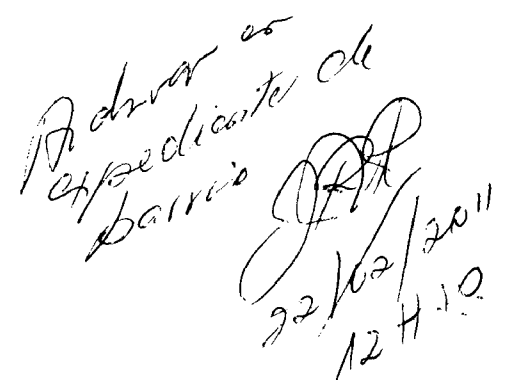 en
expediente de
barrio
22/02/2011
12H10